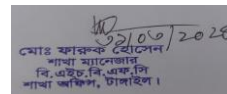 ৩১/০৭/২০২৪
মোঃ ফারুক হোসেন
শাখা ম্যানেজার
বি.এইচ.বি.এফ.সি
শাখা অফিস, টাঙ্গাইল।